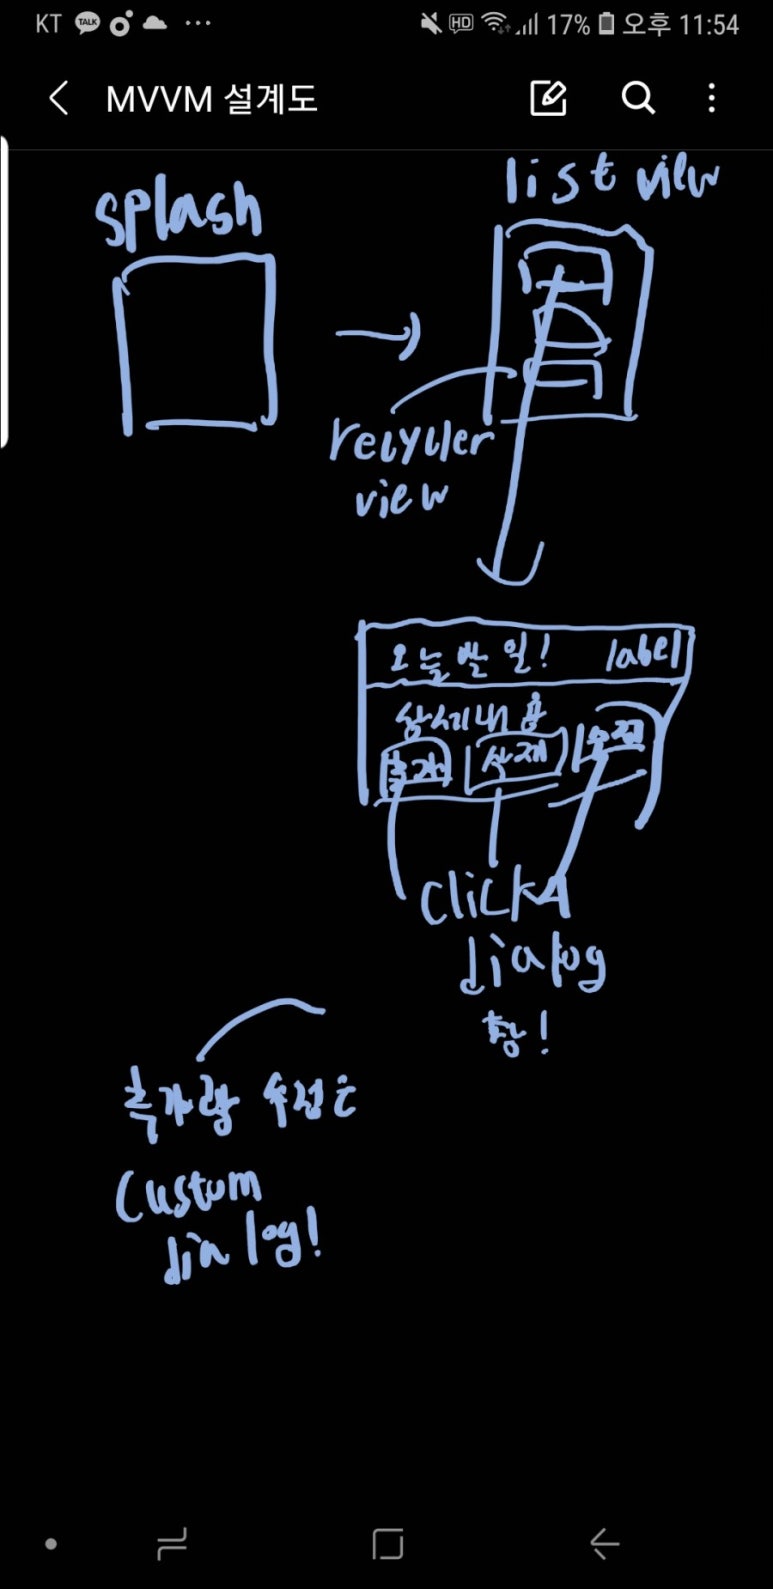 KT TALK HD 17% 오후 11:54
MVVM 설계도
splash
list view
recycler
view
오늘 할 일! label
상세내용
추가 삭제 수정
click시
dialog
창!
추가랑 수정은
Custom
dialog!